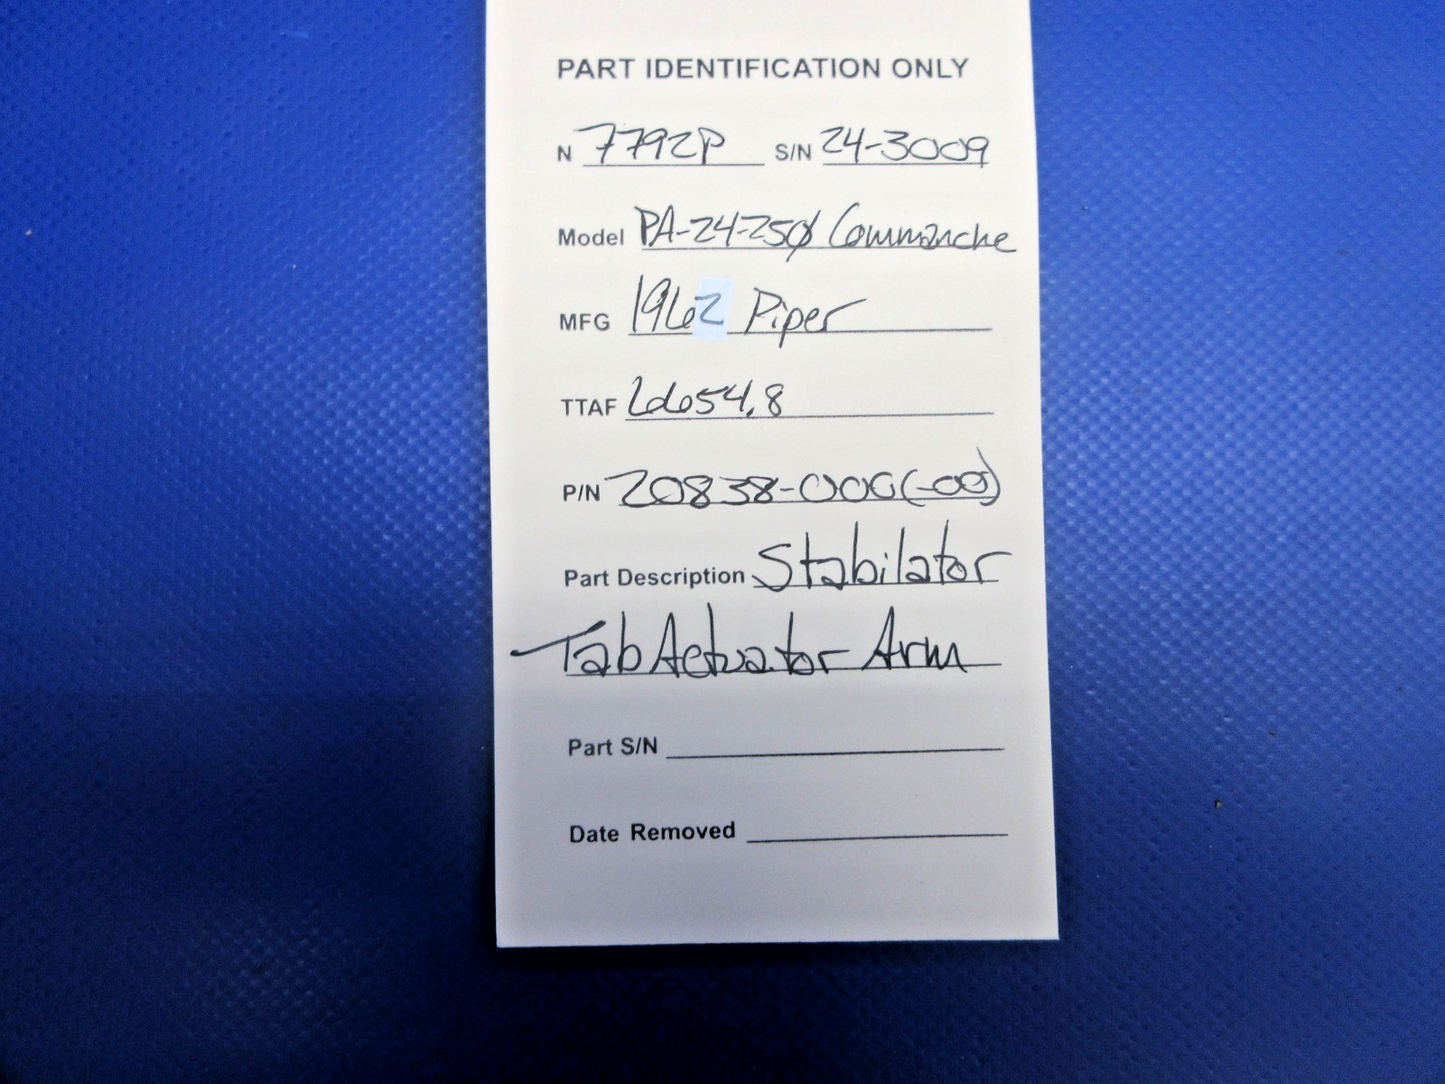 PART IDENTIFICATION ONLY
N 7792P S/N 24-3009
Model PA-24-250 Commanche
MFG 1962 Piper
TTAF 6654.8
P/N 20838-000(-00)
Part Description Stabilator
Tab Actuator Arm
Part S/N
Date Removed